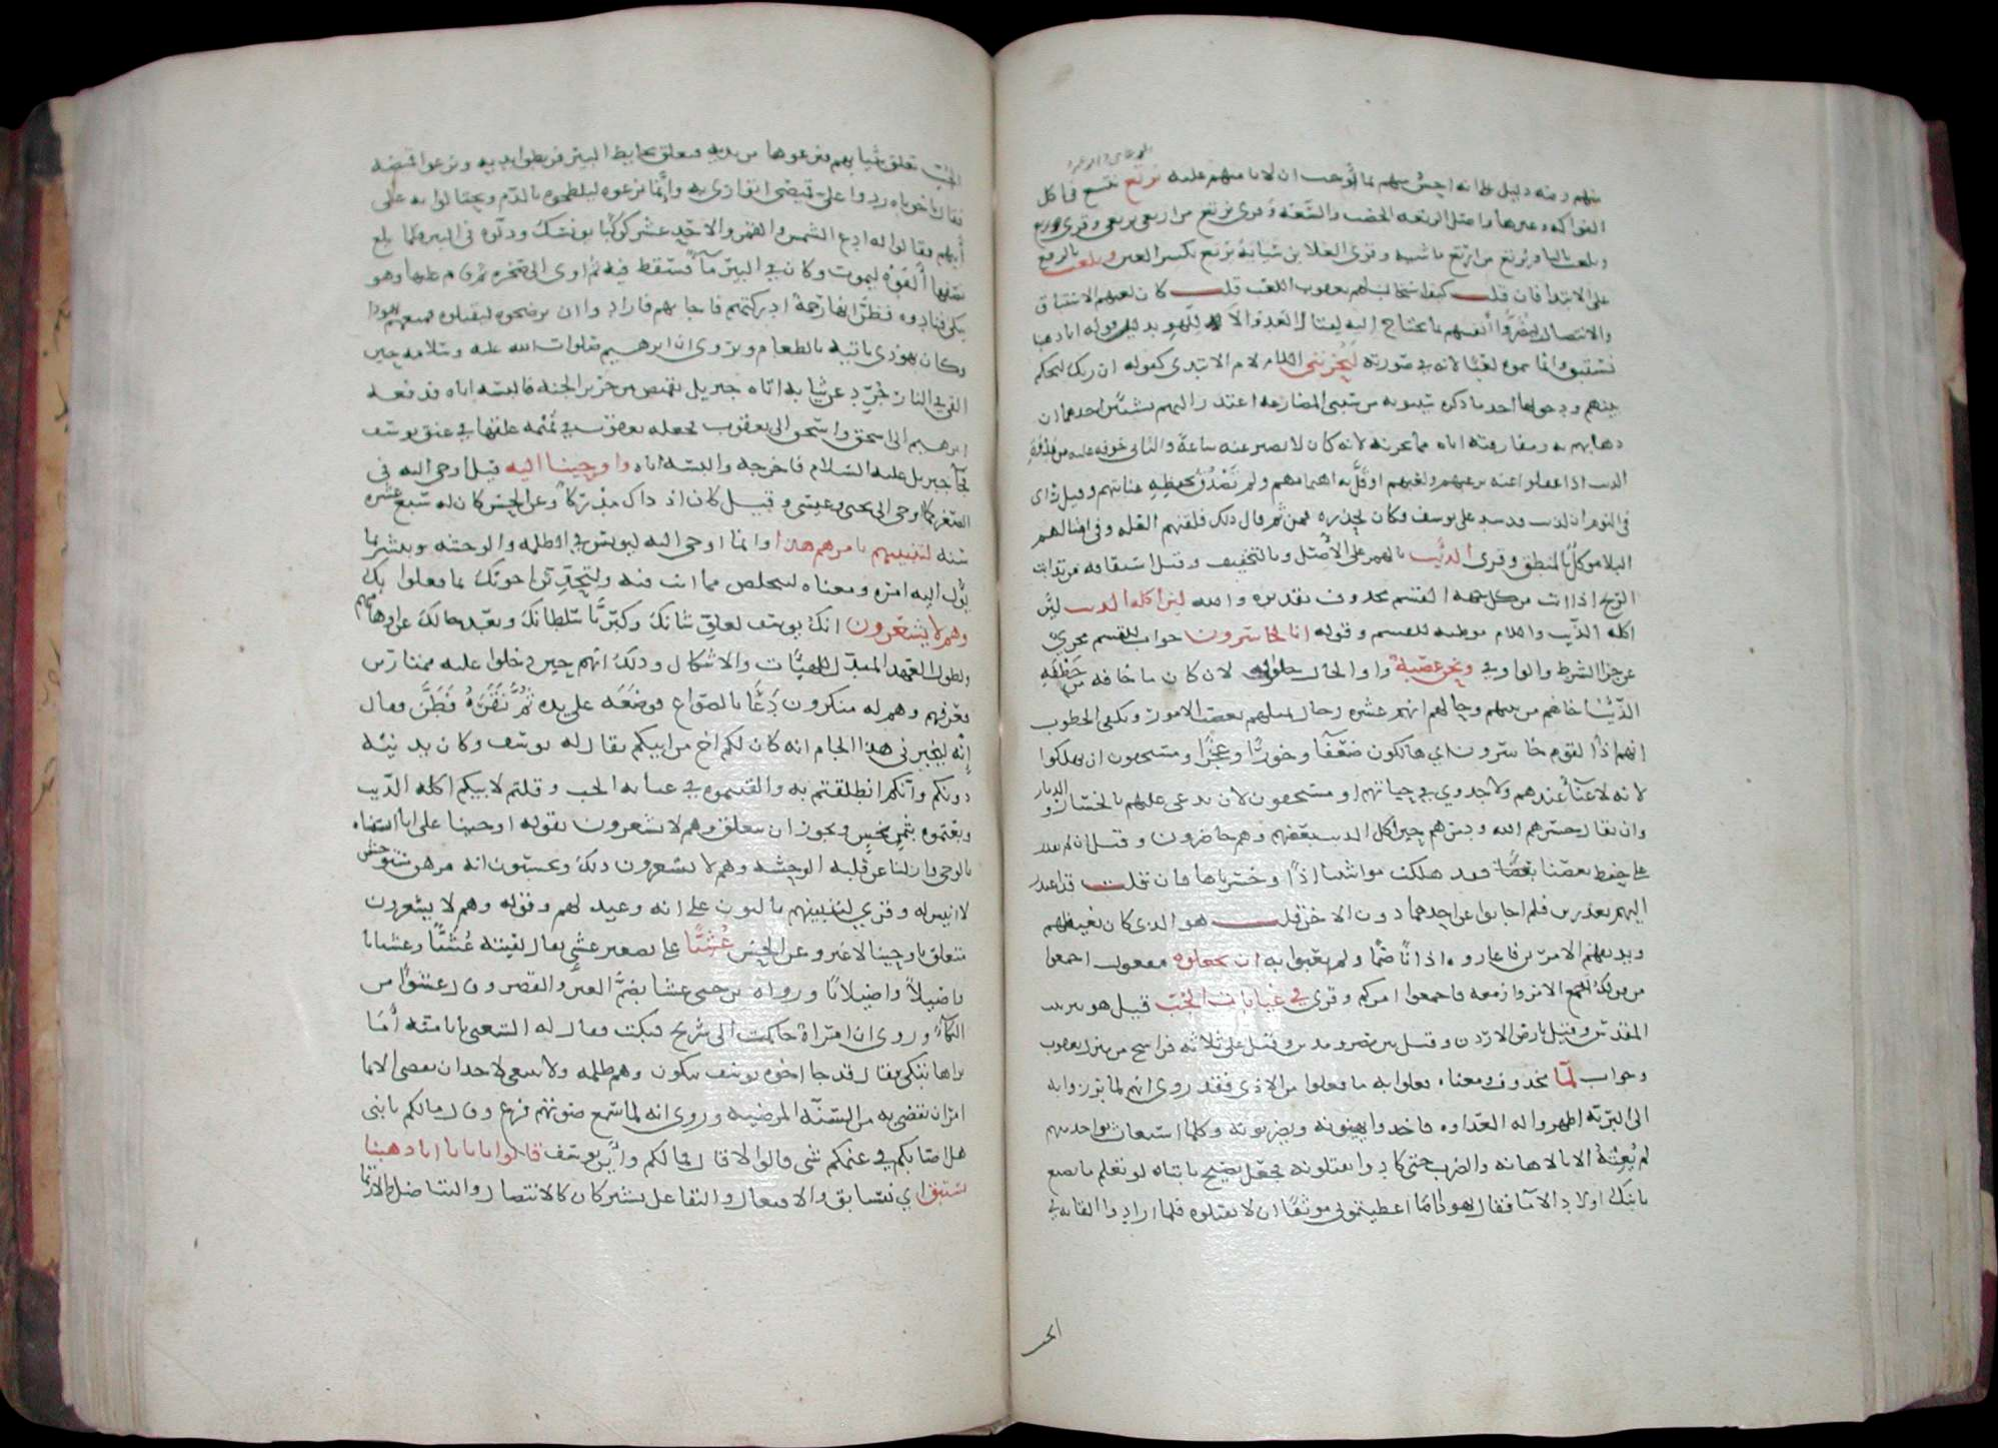 منهم ومنه دليل على انه احس منهم بما اوجب ان لا يامنهم عليه نرتع نتسع في اكل
الفواكه وغيرها واصل الرتعه الخصب والسعه وقرى نرتع من ارتعى يرتعى وقرى
ويلعب باليا ويرتع من ارتع ماشيته وقرى العلا بن سيابة يرتع بكسر العين ويلعب بالرفع
على الابتدا فان قلت كيف استجاز لهم يعقوب اللعب قلت كان لعبهم الاستباق
والانتضال ليضروا انفسهم بما يحتاج اليه لقتال العدو لا للهو بدليل قوله انا ذهبنا
نستبق وانما سموه لعبا لانه في صورته ليحزنني اللام لام الابتدى كقوله ان ربك ليحكم
بينهم ودخولها احد ما ذكره سيبويه من سببى المضارعه اعتذر اليهم بشيئين احدهما ان
ذهابهم به ومفارقته اياه مما يحزنه لانه كان لا يصبر عنه ساعة والثانى خوفه عليه من عدوة
الذيب اذا غفلوا عنه برعيهم ولعبهم او قل به اهتمامهم ولم تصدق بحفظه عنايتهم وقيل راى
فى النوم ان الذيب قد شد على يوسف وكان يحذره فمن ثم قال ذلك فلقنهم العله وفى امثالهم
البلا موكل بالمنطق وقرى الذيب بالهمز على الاصل وبالتخفيف وقيل اشتقاقه من تذابت
الريح اذا اتت من كل جهه القسم محذوف تقديره والله لين اكله الذيب لين
اكله الذيب واللام موطيه للقسم وقوله انا لخاسرون جواب للقسم مجزئ
عن جزا الشرط والواو في ونحن عصبة واو الحال حلفوا له لان كان ما خافه من خطفه
الذيب اخاهم من بينهم وحالهم انهم عشره رجال بمثلهم تعصب الامور وتكفى الخطوب
انهم اذا لقوم خاسرون اي هالكون ضعفا وخورا وعجزا ومستحقون ان يهلكوا
لانه لا غنا عندهم ولا جدوي في حياتهم او مستحقون لان يدعى عليهم بالخسار والدبار
وان يقال خسرهم الله ودمرهم حين اكل الذيب بعضهم وهم حاضرون وقيل ان لم نقدر
على حفظ بعضنا فقد هلكت مواشينا اذا وخسرناها فان قلت قد اعتذر
اليهم بعذرين فلم اجابوا عن احدهما دون الاخر قلت هو الذى كان يغيظهم
ويذيقهم الامرين فاعاروه اذانا صما ولم يعبوا به ان يجعلوه مفعول اجمعوا
من قولك اجمع الامر وازمعه فاجمعوا امركم وقرى في غيابات الجب قيل هو بير بيت
المقدس وقيل بارض الاردن وقيل بين مصر ومدين وقيل على ثلاثه فراسخ من منزل يعقوب
وجواب لما محذوف ومعناه فعلوا به ما فعلوا من الاذى فقد روى انهم لما برزوا به
الى البريه اظهروا له العداوه فاخذوا يهينونه ويضربونه وكلما استغاث بواحد منهم
لم يغثه الا بالاهانه والضرب حتى كادوا يقتلونه فجعل يصيح يا ابتاه لو تعلم ما يصنع
بابنك اولاد الاما فقال يهوذا اما اعطيتموني موثقا ان لا تقتلوه فلما ارادوا القاه في
الجب
الجب تعلق بثيابهم فنزعوها من يديه فتعلق بحايط البير فربطوا يديه ونزعوا قميصه
فقال يا اخوتاه ردوا على قميصى اتوارى به وانما نزعوه ليلطخوه بالدم ويحتالوا به على
أبيهم فقالوا له ادع الشمس والقمر والاحد عشر كوكبا يونسك ودلوه فى البير فلما بلغ
نصفها القوه ليموت وكان في البير مآ فسقط فيه ثم اوى الى صخره فقام عليها وهو
يبكى فنادوه فظن انها رحمة ادركتهم فاجابهم فارادوا ان يرضخوه ليقتلوه فمنعهم يهوذا
وكان يهوذى ياتيه بالطعام ويروى ان ابرهيم صلوات الله عليه وسلامه حين
القي في النار جرد عن ثيابه اتاه جبريل بقميص من حرير الجنه فالبسه اياه فدفعه
ابرهيم الى اسحق واسحق الى يعقوب فجعله يعقوب في تميمه علقها في عنق يوسف
فجآ جبريل عليه السلام فاخرجه والبسه اياه واوحينا اليه قيل اوحى اليه فى
الصغر كما اوحى الى يحيى وعيسى وقيل كان اذ ذاك مدركا وعن الحسن كان له سبع عشره
سنه لتنبينهم بامرهم هذا وانما اوحى اليه ليونس في الظلمه والوحشه ويبشر بما
يؤل اليه امره ومعناه لتخلص مما انت فيه ولتحدثن اخوتك بما فعلوا بك
وهم لا يشعرون انك يوسف لعلو شانك وكبريا سلطانك وبعد حالك عن اوهامهم
ولطول العهد المبدل للهيات والاشكال وذلك انهم حين دخلوا عليه ممتارين
فعرفهم وهم له منكرون دعا بالصواع فوضعه على يده ثم نقره فطن فقال
إنه ليخبرنى هذا الجام انه كان لكم اخ من ابيكم يقال له يوسف وكان يدنيه
دونكم وانكم انطلقتم به والقيتموه في غيابه الجب وقلتم لابيكم اكله الذيب
وبعتموه بثمن بخس ويجوز ان يتعلق وهم لا يشعرون بقوله اوحينا على انا انسناه
بالوحى وازلنا عن قلبه الوحشه وهم لا يشعرون ذلك ويحسبون انه مرهق مستوحش
لا انيس له وقرى لننبينهم بالنون على انه وعيد لهم وقوله وهم لا يشعرون
متعلق باوحينا لا غير وعن الحسن عشيا على تصغير عشى يقال لقيته عشيا وعشيانا
واصيلا واصيلانا ورواه بن جنى عشا بضم العين والقصر وقال عشوا من
البكآ وروى ان امراة حاكمت الى شريح فبكت فقال له الشعبى يابا اميه أما
تراها تبكى فقال قد جا اخوه يوسف يبكون وهم ظلمه ولا ينبغى لاحد ان يقضى الا بما
امر ان يقضى به من السنه المرضيه وروى انه لما سمع صوتهم فزع وقال مالكم يا بنى
هل اصابكم في غنمكم شى قالوا لا قال فما لكم واين يوسف قالوا يا ابانا انا ذهبنا
نستبق اي نتسابق والافتعال والتفاعل يشتركان كالانتضال والتناضل والارتما